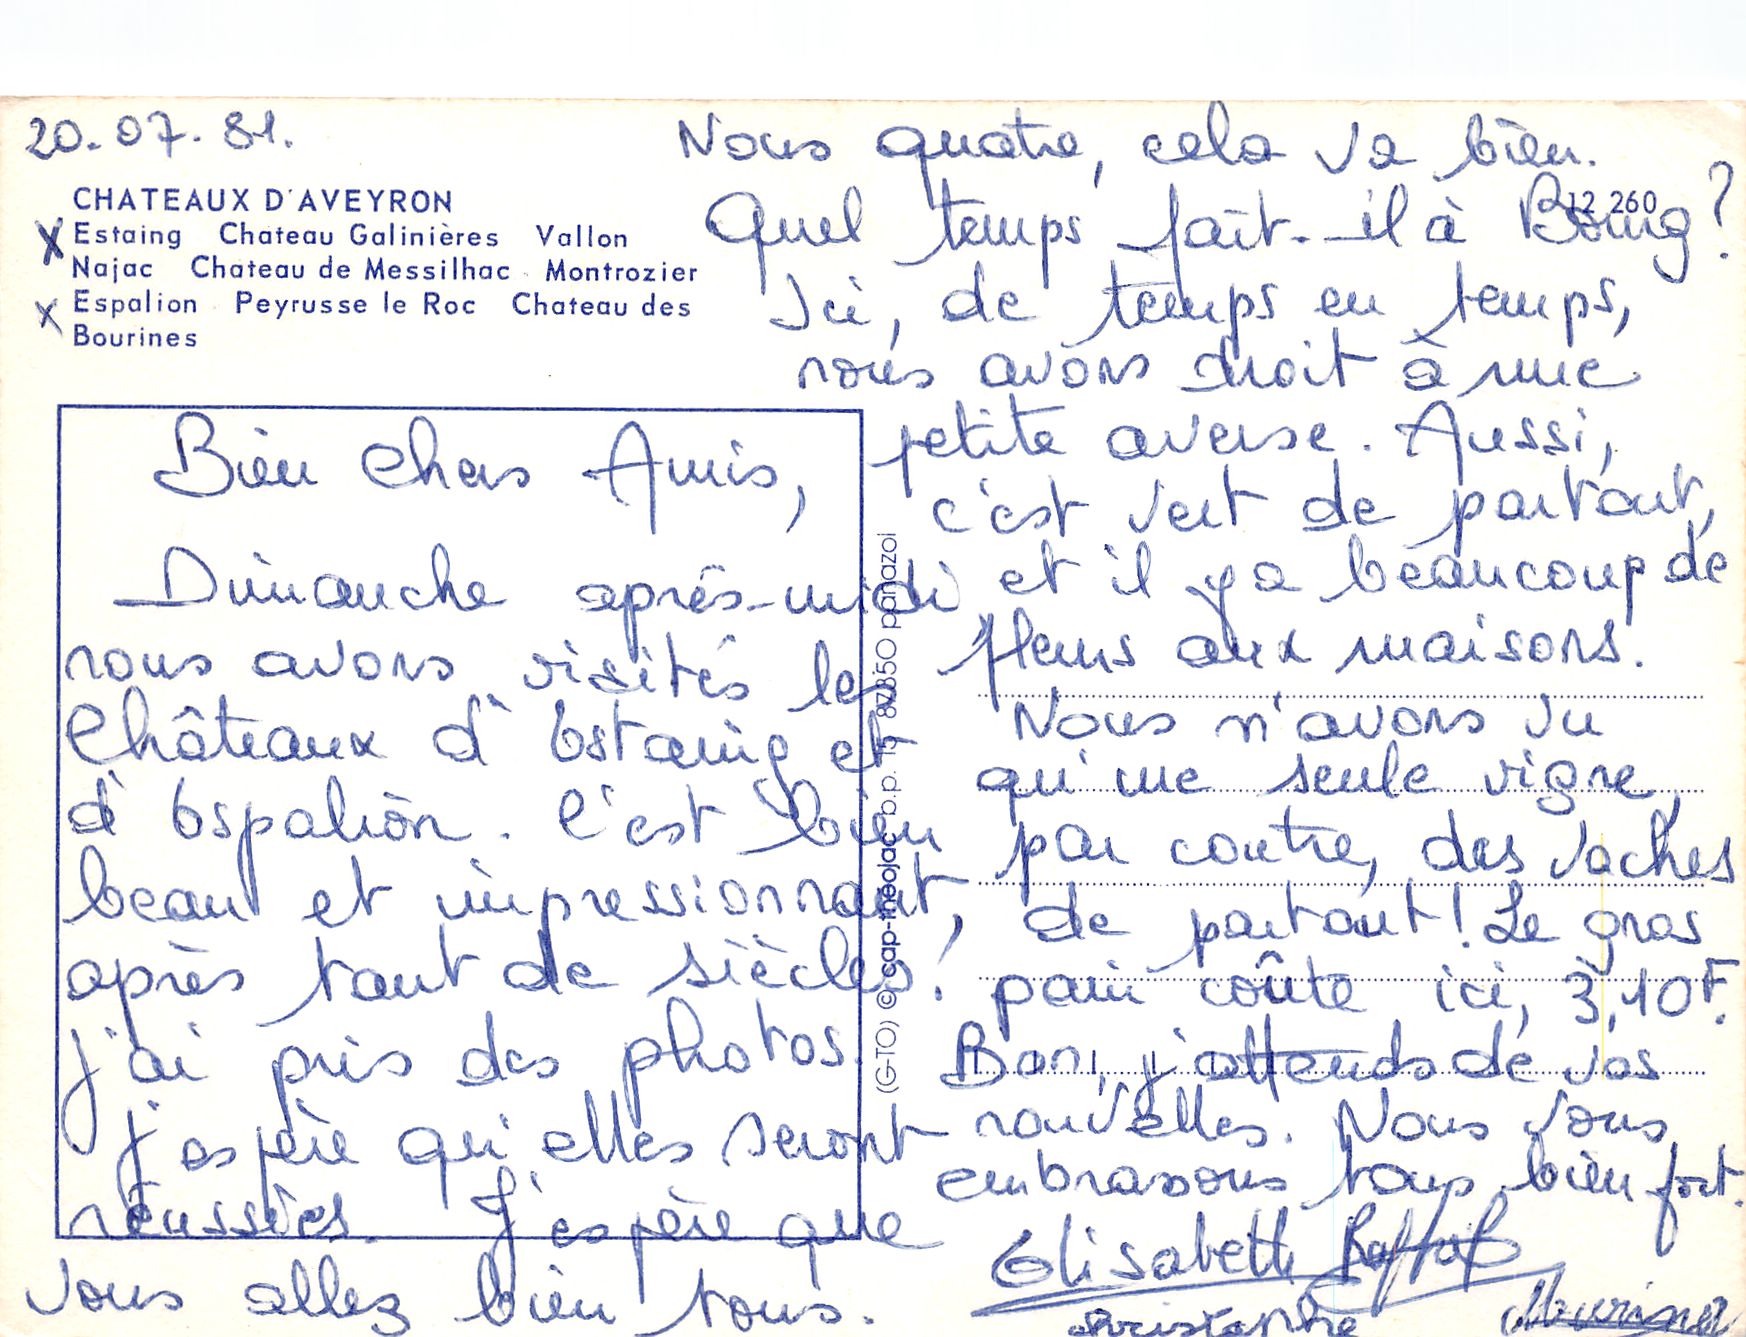 20.07.81.
CHATEAUX D'AVEYRON
X Estaing Chateau Galinières Vallon
Najac Chateau de Messilhac Montrozier
X Espalion Peyrusse le Roc Chateau des
Bourines
Bien Chers Amis,
Dimanche après-midi
nous avons visités les
Châteaux d'Estaing et
d'Espalion. C'est bien
beau et impressionnant,
après tant de siècles!
J'ai pris des photos.
J'espère qu'elles seront
réussies. J'espère que
vous allez bien tous.
(G-TO) © cap-théojac b.p. 15 87350 panazol
Nous quatre, cela va bien.
12 260
Quel temps fait-il à Boing?
Ici, de temps en temps,
nous avons droit à une
petite averse. Aussi,
c'est vert de partout,
et il y a beaucoup de
fleurs aux maisons.
Nous n'avons vu
qu'une seule vigne,
par contre, des vaches
de partout! Le gros
pain coûte ici, 3,10F.
Bon, j'attends de vos
nouvelles. Nous vous
embrassons tous bien fort.
Elisabeth
Christophe